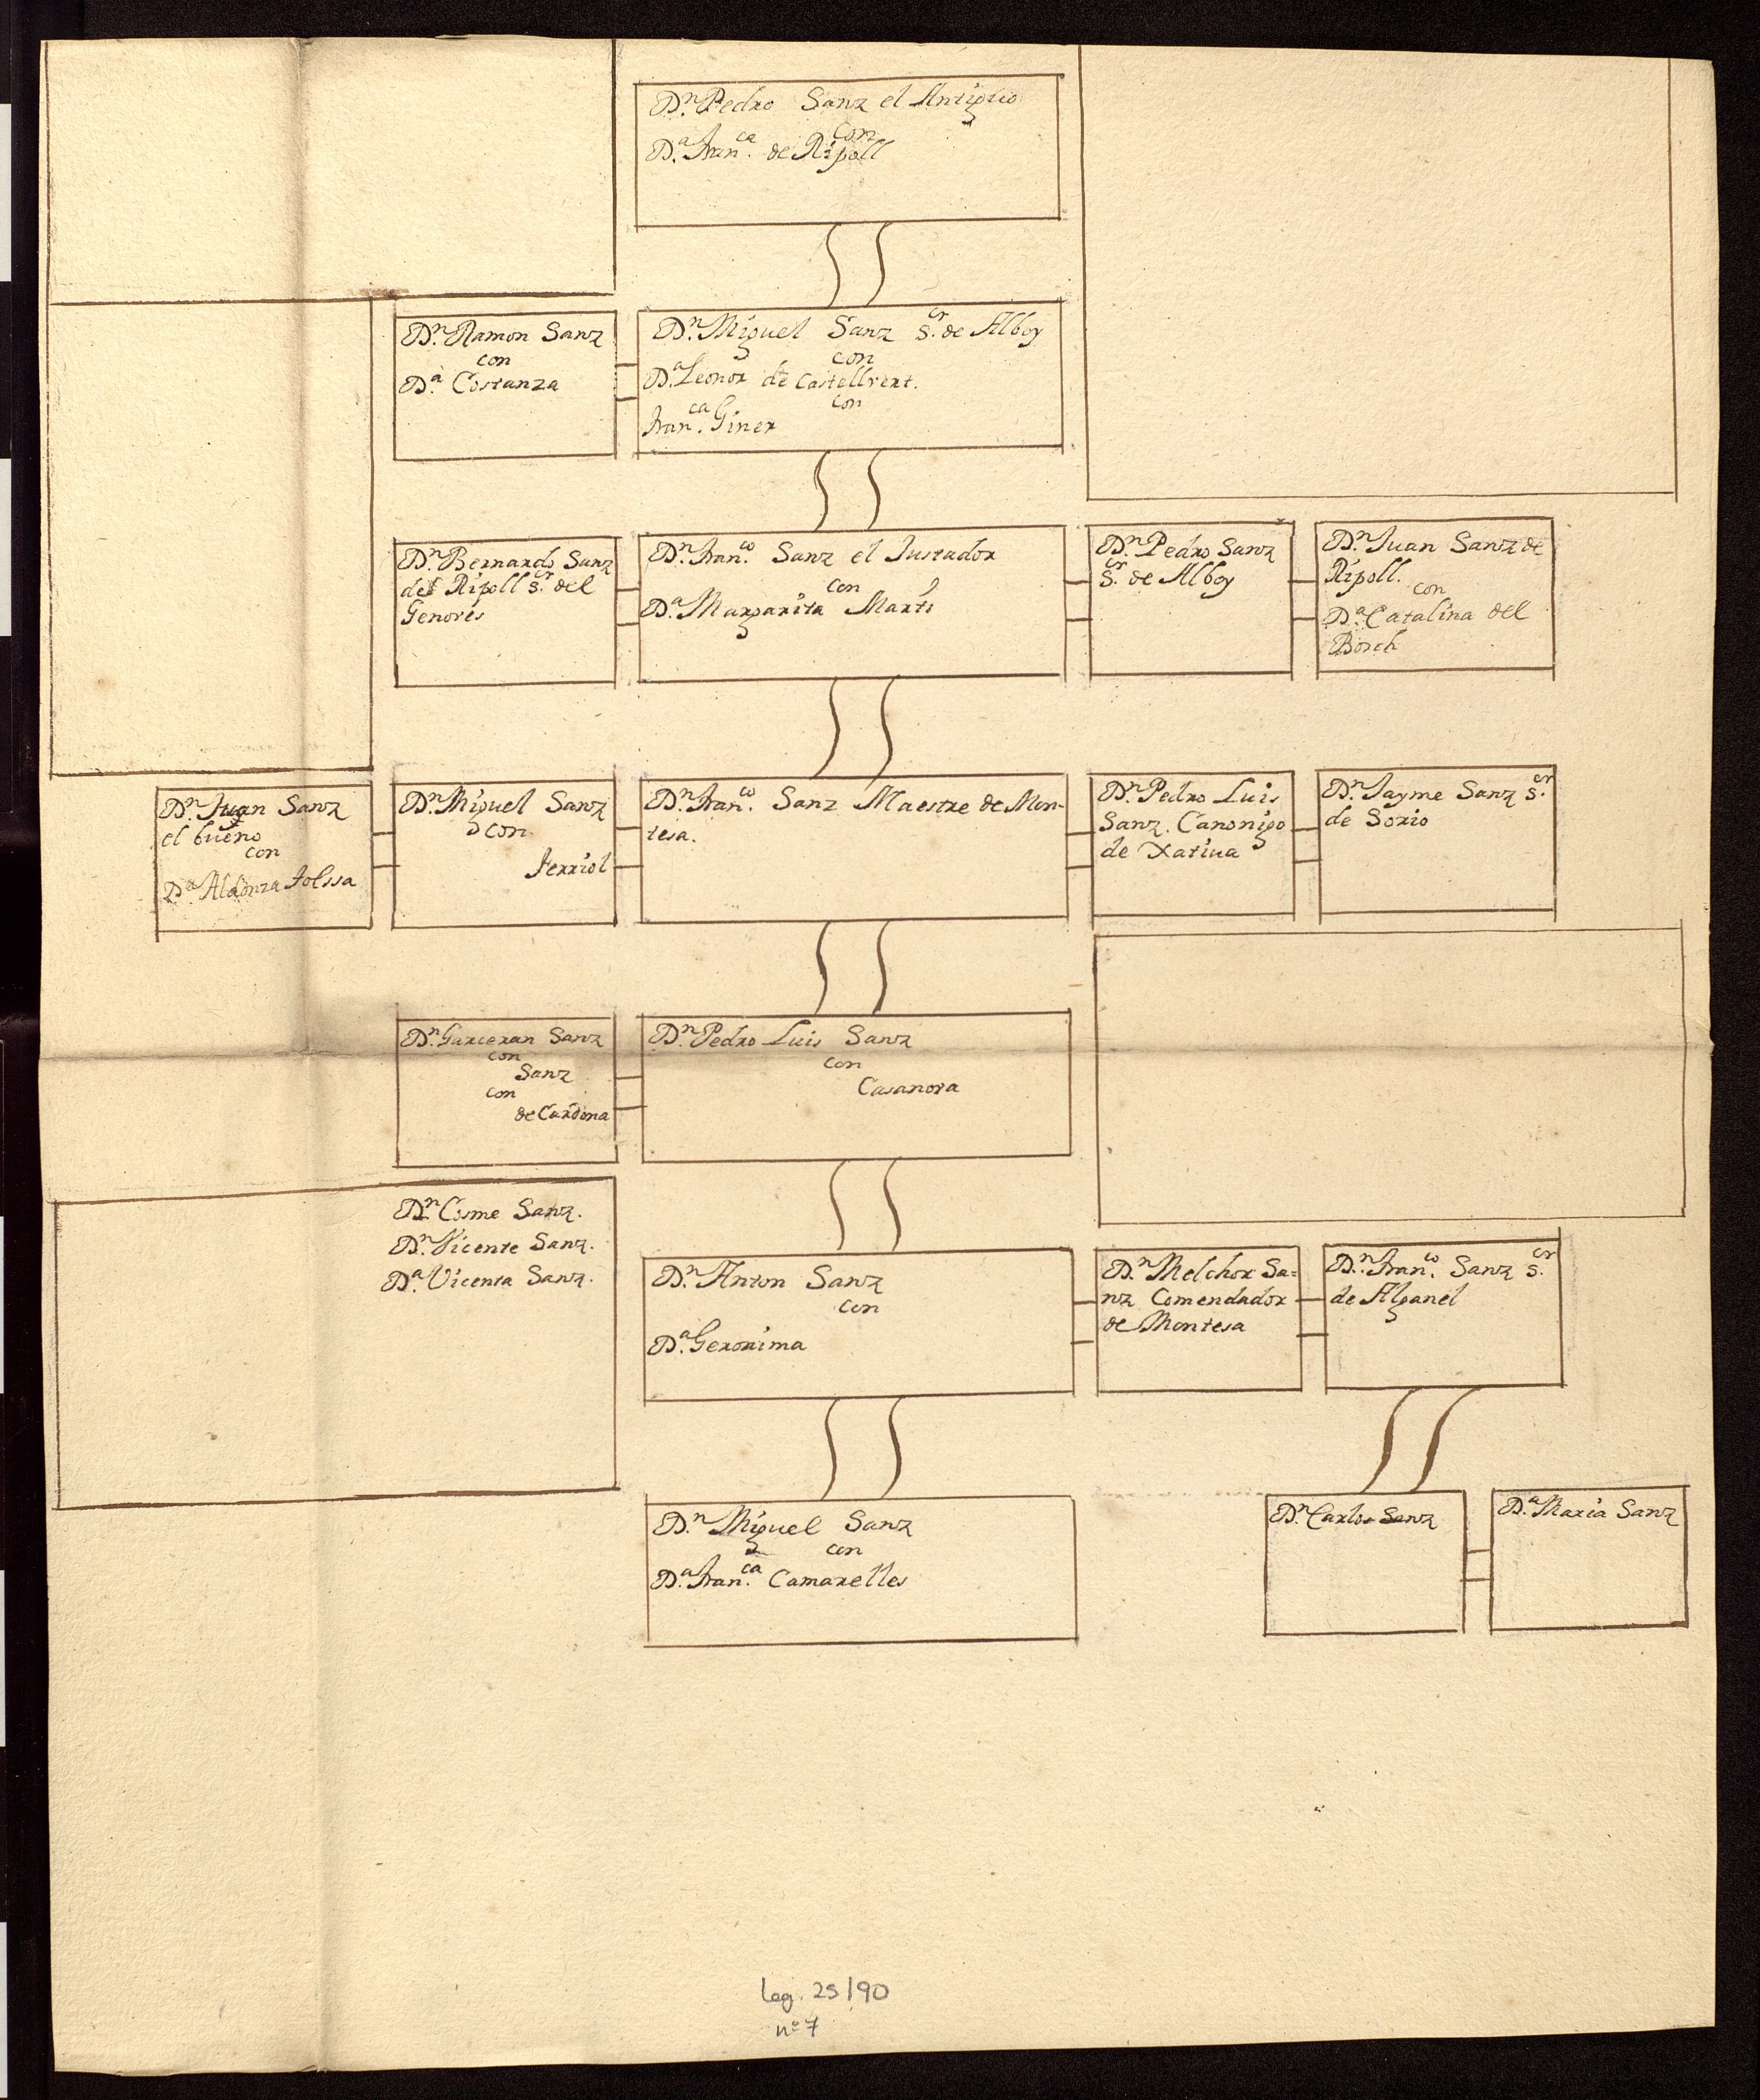 Dⁿ. Pedro Sanz el Antiguo
con
Dª. Franᶜᵃ. de Ripoll
Dⁿ. Ramon Sanz
con
Dª. Costanza
Dⁿ. Miguel Sanz Sᵒʳ. de Alboy
con
Dª. Leonor de Castellvert.
con
Franᶜᵃ. Giner
Dⁿ. Bernardo Sanz
de Ripoll Sᵒʳ. del
Genovés
Dⁿ. Franᶜᵒ. Sanz el Justador
con
Dª. Margarita Martí
Dⁿ. Pedro Sanz
Sᵒʳ. de Alboy
Dⁿ. Juan Sanz de
Ripoll.
con
Dª. Catalina del
Bosch
Dⁿ. Juan Sanz
el bueno
con
Dª. Aldonza
Dⁿ. Miguel Sanz
con
Ferriol
Dⁿ. Franᶜᵒ. Sanz Maestre de Mon-
tesa.
Dⁿ. Pedro Luis
Sanz. Canonigo
de Xativa
Dⁿ. Jayme Sanz Sᵒʳ.
de Sorio
Dⁿ. Garceran Sanz
con
Sanz
con
de Cardona
Dⁿ. Pedro Luis Sanz
con
Casanova
Dⁿ. Cosme Sanz.
Dⁿ. Vicente Sanz.
Dª. Vicenta Sanz.
Dⁿ. Anton Sanz
con
Dª. Geronima
Dⁿ. Melchor Sa=
nz Comendador
de Montesa
Dⁿ. Franᶜᵒ. Sanz Sᵒʳ.
de Alganel
Dⁿ. Miguel Sanz
con
Dª. Franᶜᵃ. Camarelles
Dⁿ. Carlos Sanz
Dª. Maria Sanz
Leg. 25/90
nº 7